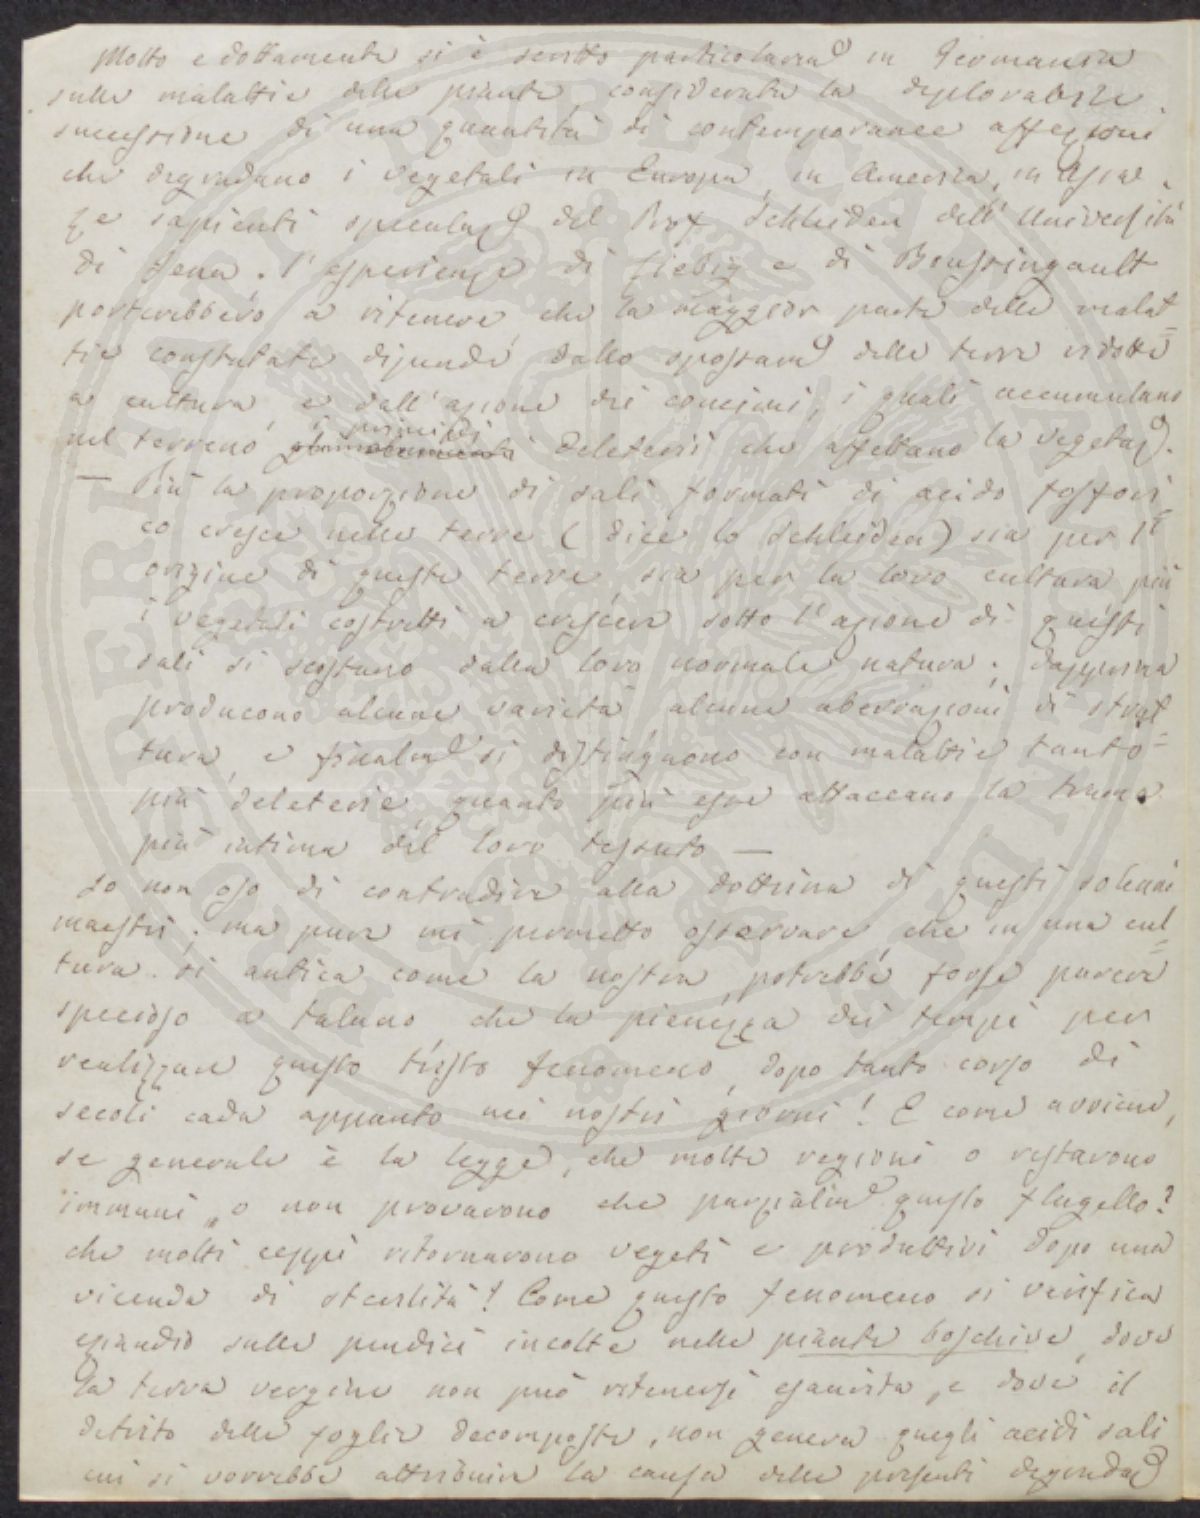 Molto e dottamente si è scritto particolarm.e in Germania
sulle malattie delle piante, considerata la deplorabile
successione di una quantità di contemporanee affezioni
che degradano i vegetali in Europa, in America, in Asia.
Le sapienti speculaz.e del Prof Schleiden dell'Università
di Jena. l'esperienze di Liebig e di Boussingault
porterebbero a ritenere, che la maggior parte delle malat=
tie constatate dipende, dallo spossam.o delle terre ridotte
a cultura, e dall'azione dei concimi, i quali accumulano
i principi
nel terreno deleterii che affettano la vegetaz.e
— Più la proporzione di sali formati di acido fosfori=
co cresce nelle terre (dice lo Schleiden) sia per l'
origine di queste terre, sia per la loro cultura più
i vegetali costretti a crescere sotto l'azione di questi
sali si scostano dalla loro normale natura; dapprima
producono alcune varietà alcune aberrazioni di strut=
tura, e finalm.e si distinguono con malattie tanto
più deleterie, quanto più esse attaccano la trama
più intima del loro tessuto —
Io non oso di contradire alla dottrina di questi solenni
maestri; ma pure mi permetto osservare, che in una cul=
tura sì antica come la nostra, potrebbe forse parere
specioso a taluno che la pienezza dei tempi per
realizzare questo tristo fenomeno, dopo tanto corso di
secoli cada appunto nei nostri giorni! E come avviene,
se generale è la legge, che molte regioni o restarono
immuni, o non provarono che parzialm.e questo flagello?
che molti ceppi ritornarono vegeti e produttivi dopo una
vicenda di sterilità! Come questo fenomeno si verifica
eziandio sulle pendici incolte nelle piante boschive, dove
la terra vergine non può ritenersi esaurita, e dove il
detrito delle foglie decomposte, non genera quegli acidi sali
cui si vorrebbe attribuire la causa delle presenti degradaz.e